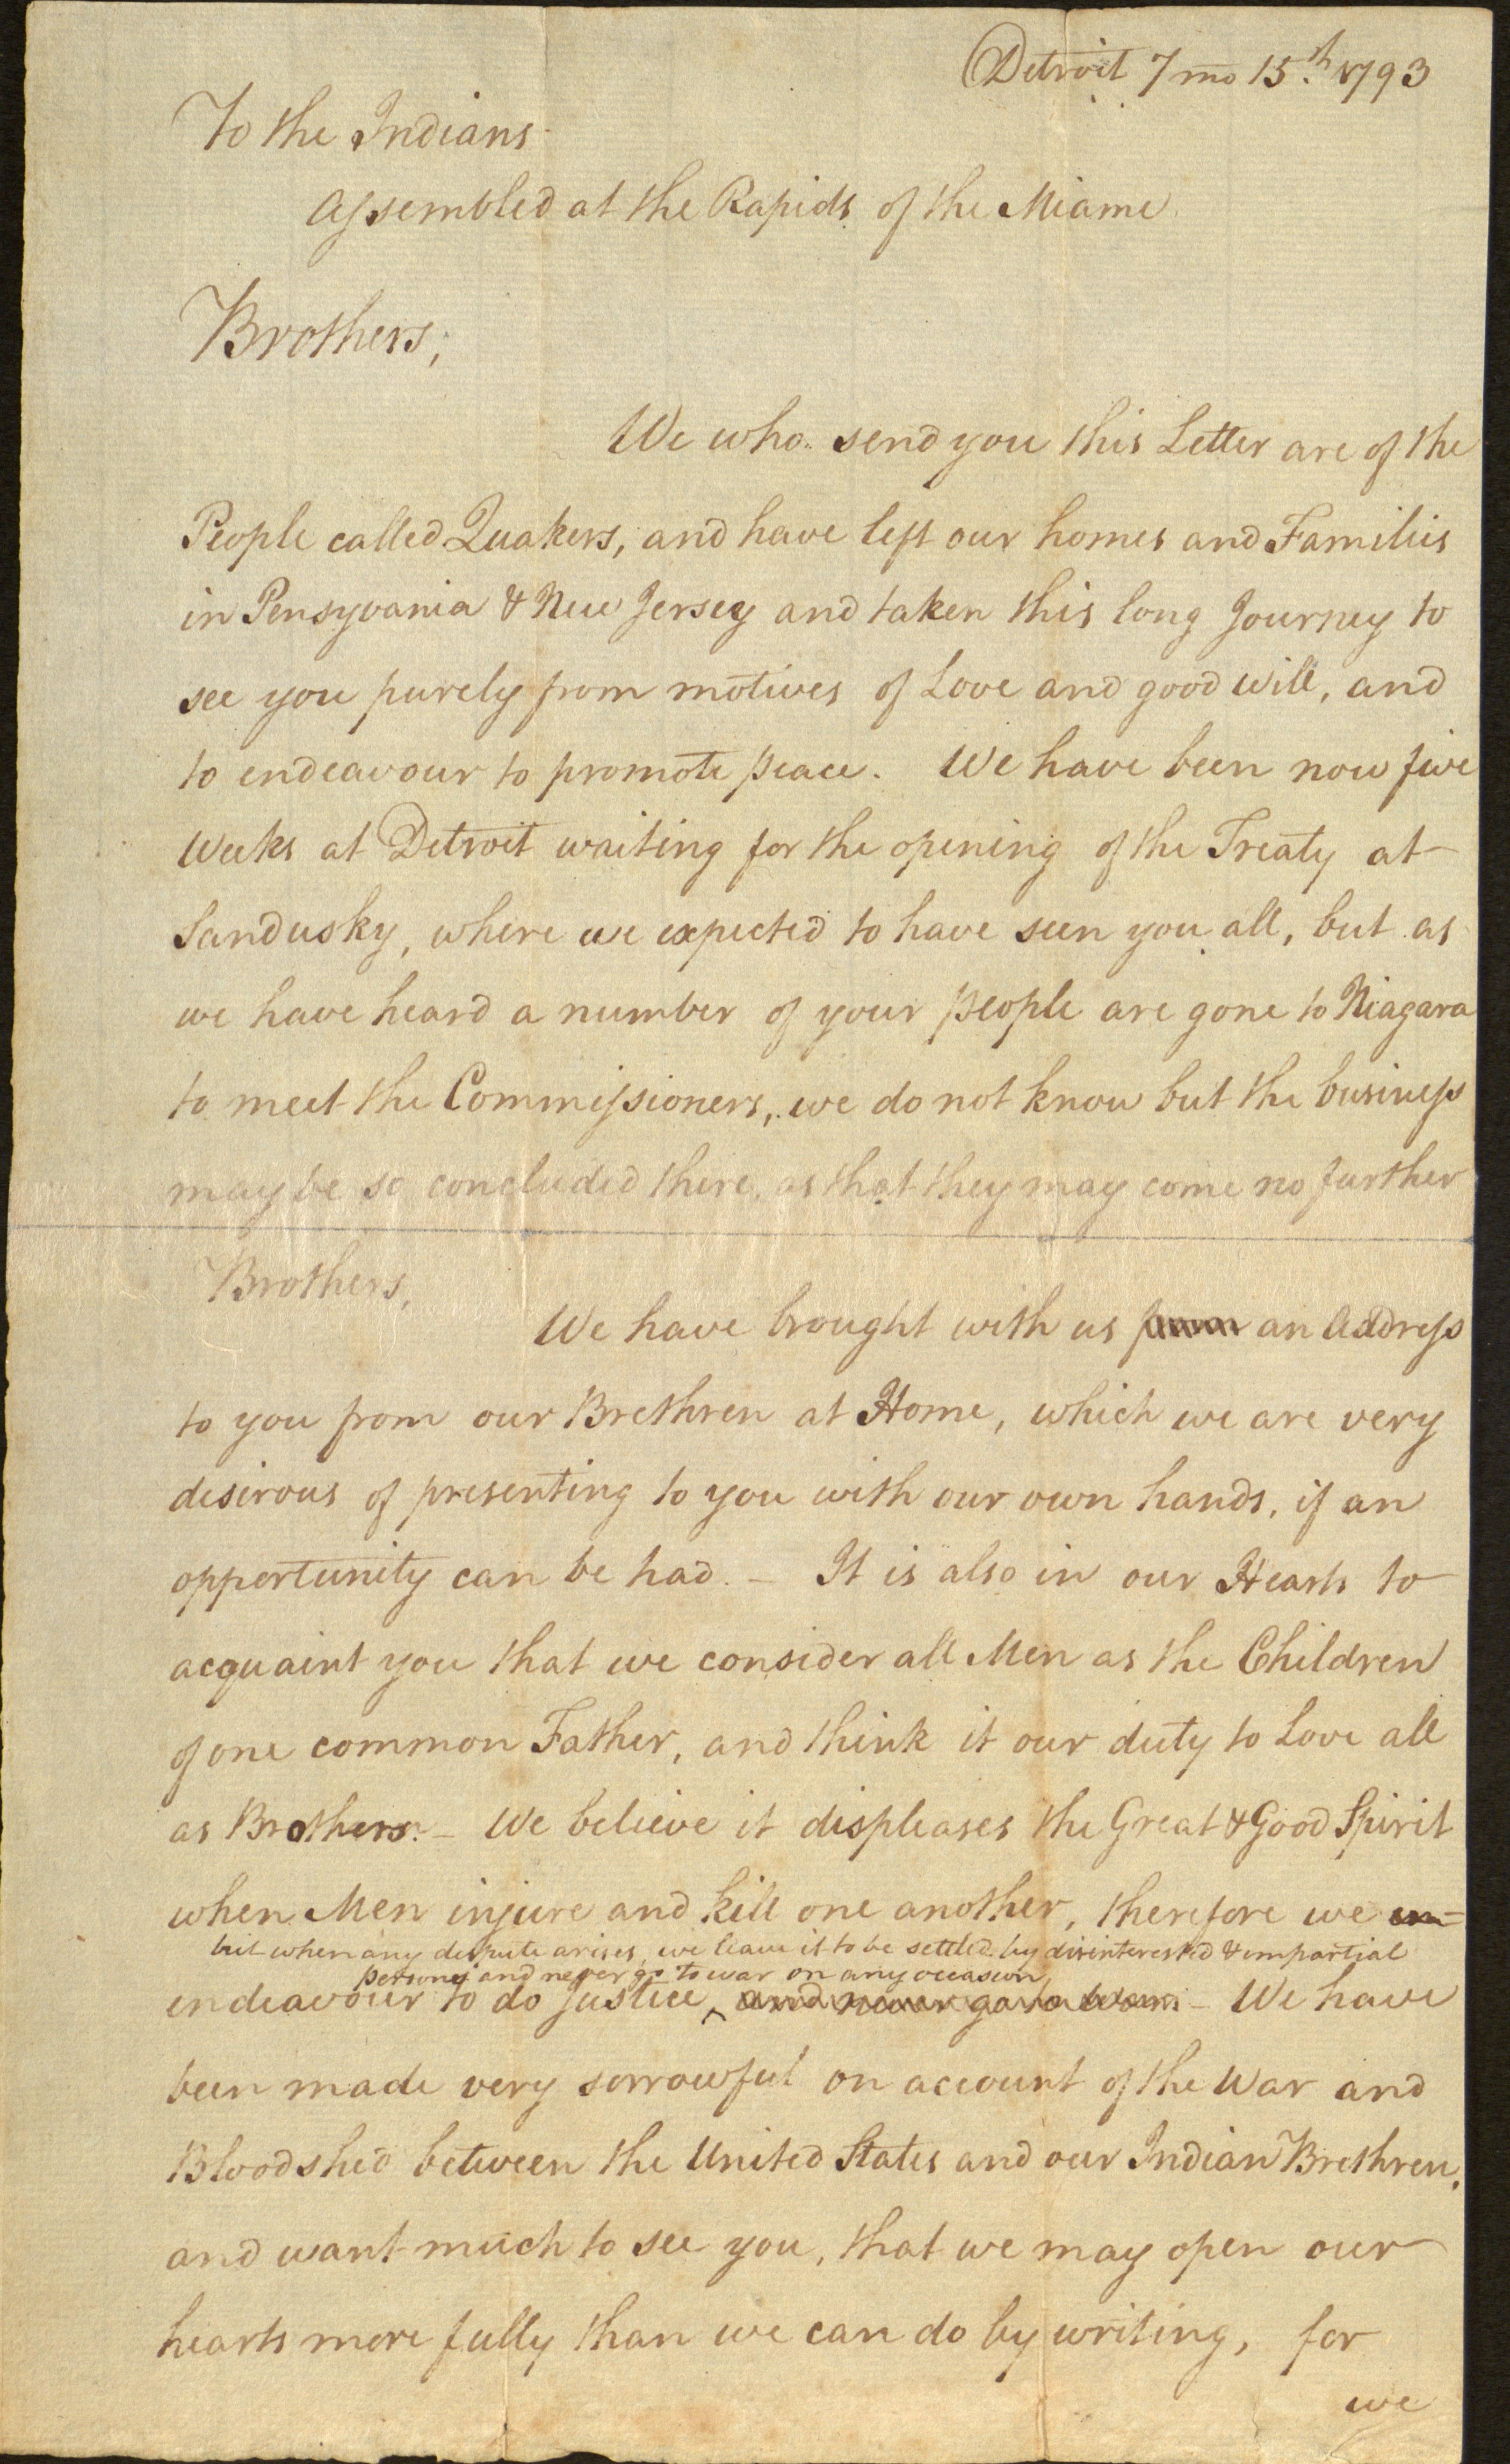 Detroit 7 mo 15.th 1793
To the Indians
Assembled at the Rapids of the Miame.
Brothers;
We who send you this Letter are of the
People called Quakers, and have left our homes and Families
in Pensyvania & New Jersey and taken this long Journey to
see you purely from motives of Love and good will, and
to endeavour to promote peace. We have been now five
Weeks at Detroit waiting for the opening of the Treaty at
Sandusky, where we expected to have seen you all, but as
we have heard a number of your people are gone to Niagara
to meet the Commissioners, we do not know but the business
may be so concluded there, as that they may come no further
Brothers,
We have brought with us from an Address
to you from our Brethren at Home, which we are very
desirous of presenting to you with our own hands, if an
opportunity can be had. – It is also in our Hearts to
acquaint you that we consider all Men as the Children
of one common Father, and think it our duty to Love all
as Brothers. – We believe it displeases the Great & Good Spirit
when Men injure and kill one another, therefore we en-
but when any dispute arises, we leave it to be settled by disinterested & impartial
persons and never go to war on any occasion
endeavour to do Justice ‸ and never go to war. – We have
been made very sorrowful on account of the War and
Bloodshed between the United States and our Indian Brethren,
and want much to see you, that we may open our
hearts more fully than we can do by writing, for
we